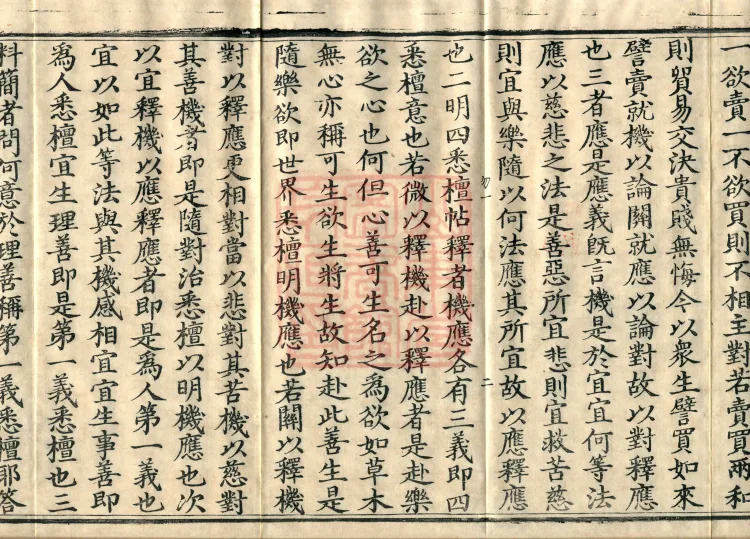 一欲賣一不欲買則不相主對若賣買兩和
則貿易交決貴賤無悔今以衆生譬買如來
譬賣就機以論關就應以論對故以對釋應
也三者應是應義旣言機是於宜宜何等法
應以慈悲之法是善惡所宜悲則宜救苦慈
則宜與樂隨以何法應其所宜故以應釋應
也二明四悉檀帖釋者機應各有三義即四
悉檀意也若微以釋機赴以釋應者是赴樂
欲之心也何但心善可生名之爲欲如草木
無心亦稱可生欲生將生故知赴此善生是
隨樂欲即世界悉檀明機應也若關以釋機
對以釋應更相對當以悲對其苦機以慈對
其善機者即是隨對治悉檀以明機應也次
以宜釋機以應釋應者即是爲人第一義也
宜以如此等法與其機感相宜宜生事善即
爲人悉檀宜生理善即是第一義悉檀也三
料簡者問何意於理善稱第一義悉檀耶答